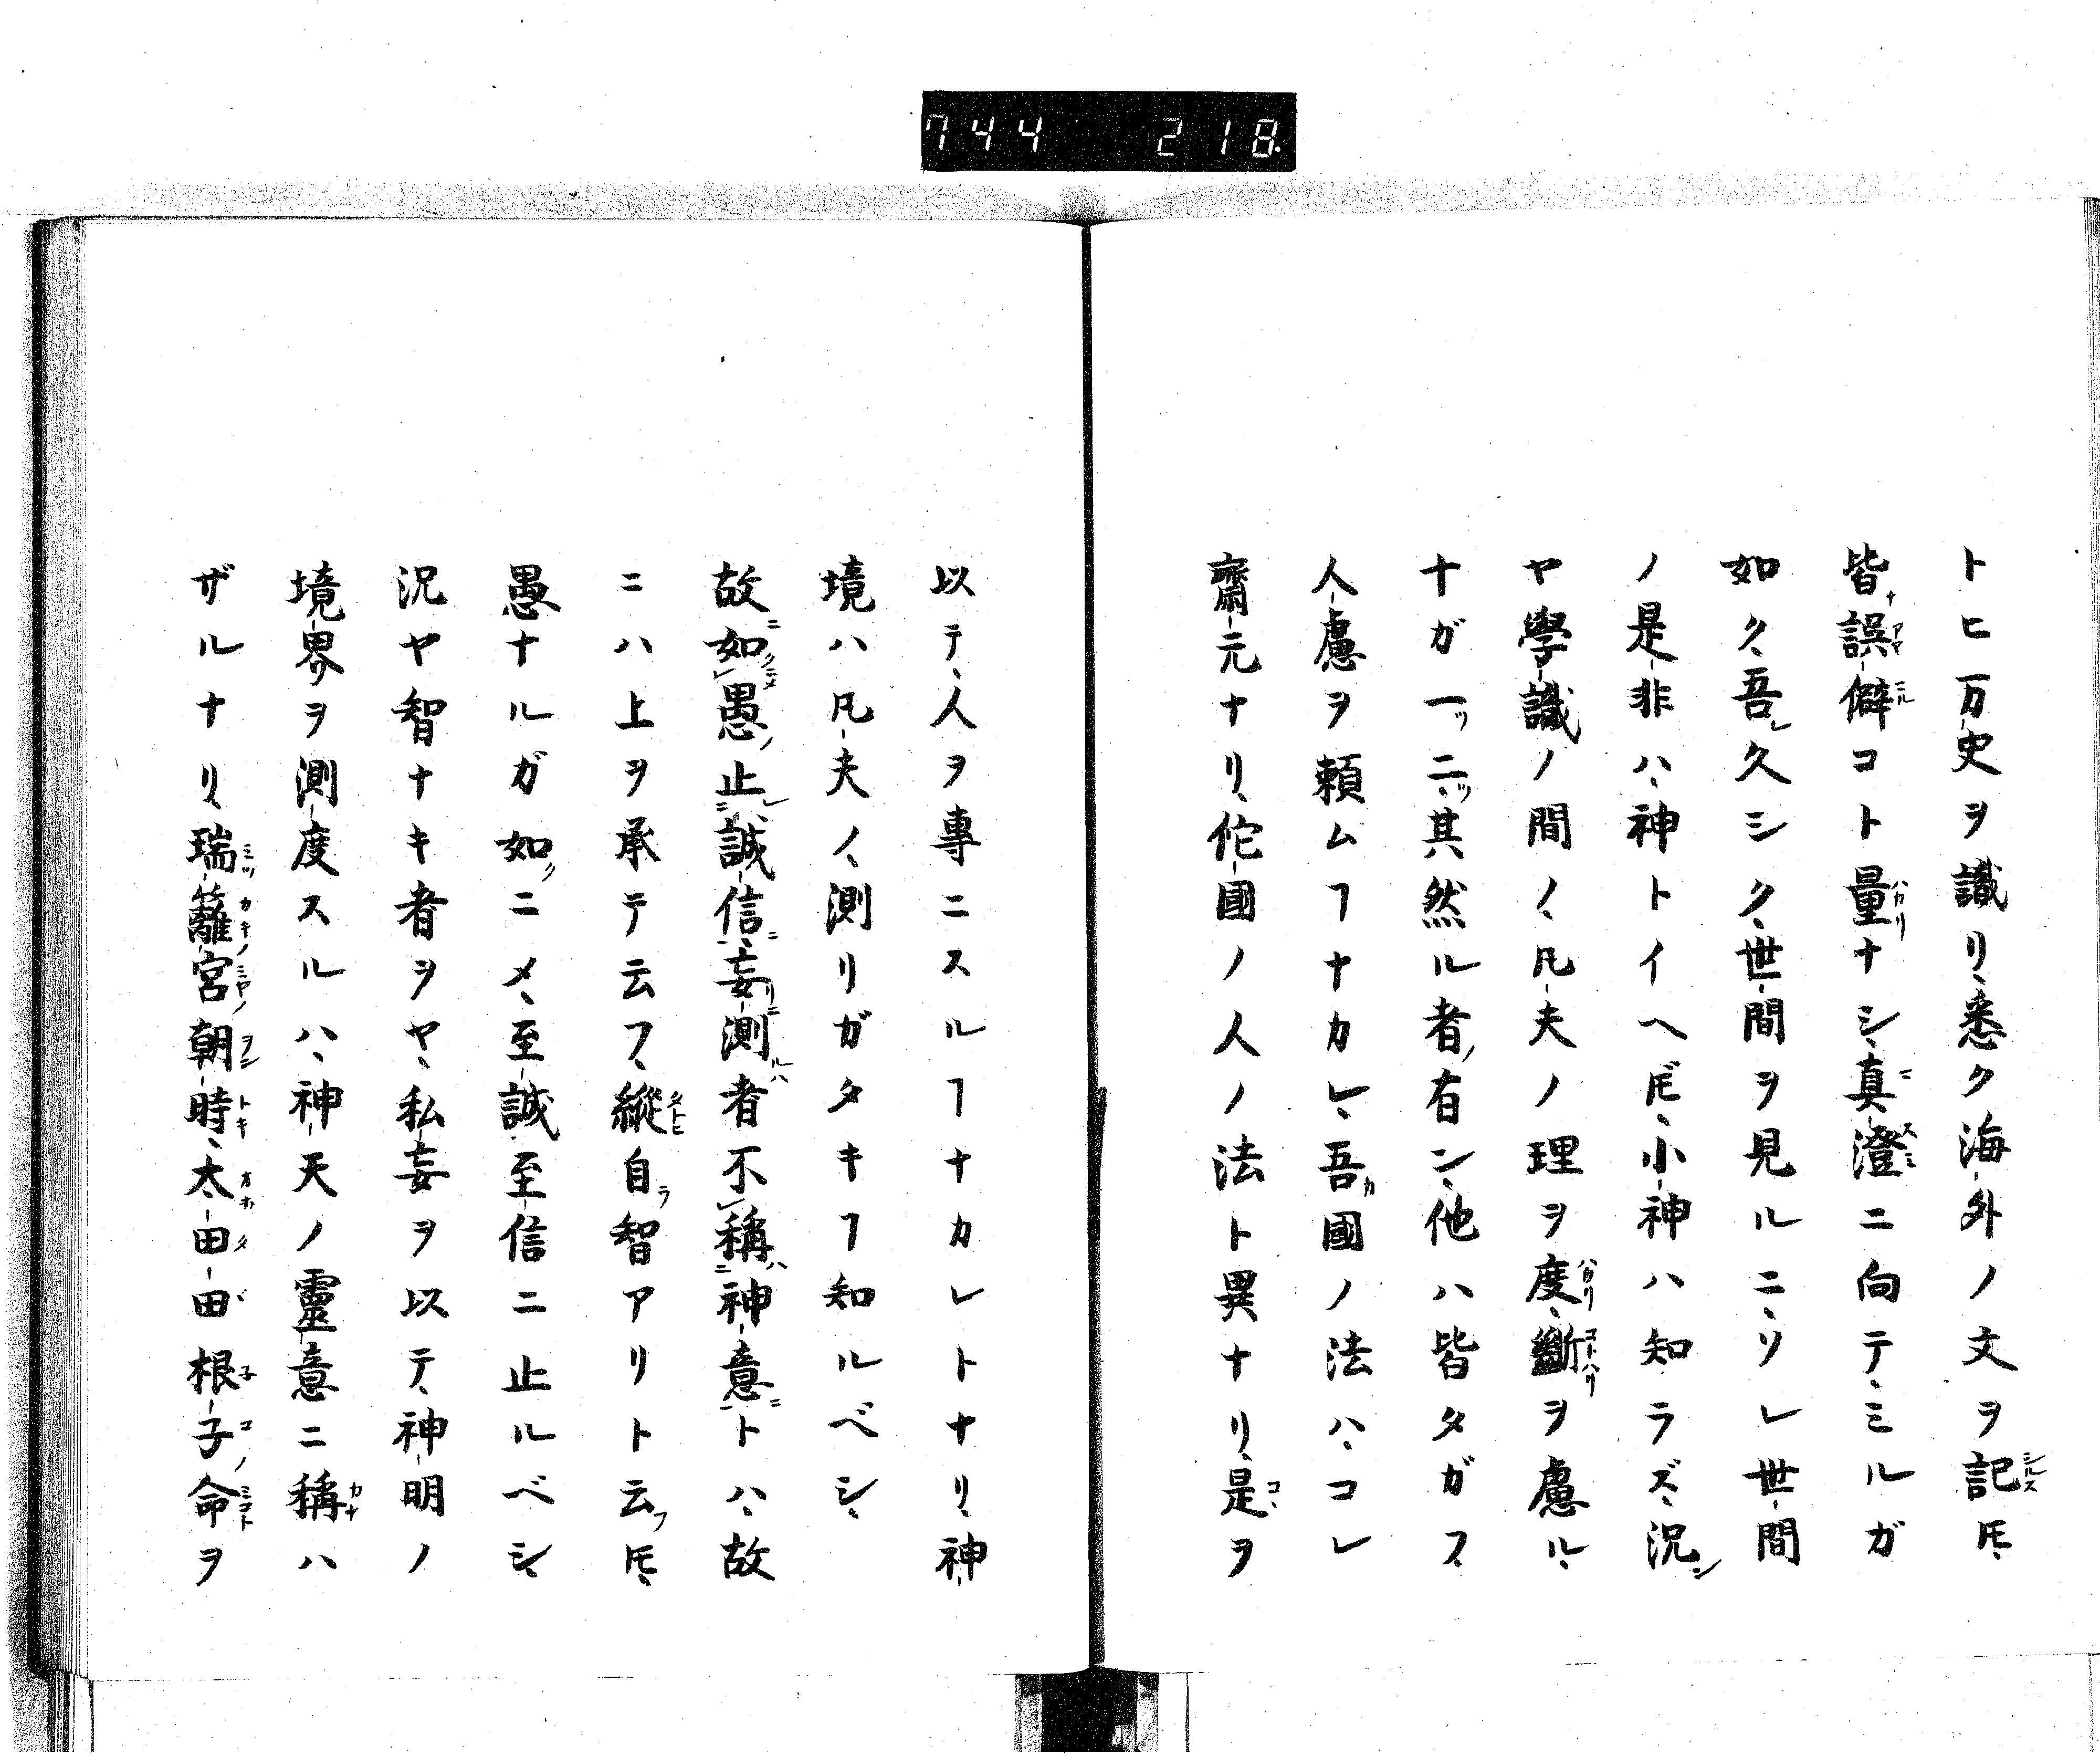 744 218
トヒ万史ヲ識リ、悉ク海外ノ文ヲ記𪜈、
皆誤僻コト量ナシ、真澄ニ向テ、ミルガ
如ク、吾久シク、世間ヲ見ルニ、ソレ世間
ノ是非ハ、神トイヘ𪜈、小神ハ知ラズ、況
ヤ學識ノ間ノ、凡夫ノ理ヲ度、斷ヲ慮ル、
十ガ一二、其然ル者有ン、他ハ皆タガフ、
人慮ヲ頼ムヿナカレ、吾國ノ法ハ、コレ
齋元ナリ、佗國ノ人ノ法ト異ナリ、是ヲ
以テ、人ヲ專ニスルヿナカレトナリ、神
境ハ凡夫ノ、測リガタキヿ知ルベシ、
故如愚止誠信、妄測者不稱神意トハ、故
ニハ上ヲ承テ云フ、縱自智アリト云𪜈、
愚ナルガ如ニメ、至誠至信ニ止ルベシ、
況ヤ智ナキ者ヲヤ、私妄ヲ以テ、神明ノ
境界ヲ測度スルハ、神天ノ靈意ニ稱ハ
ザルナリ、瑞籬宮朝時、太田田根子命ヲ